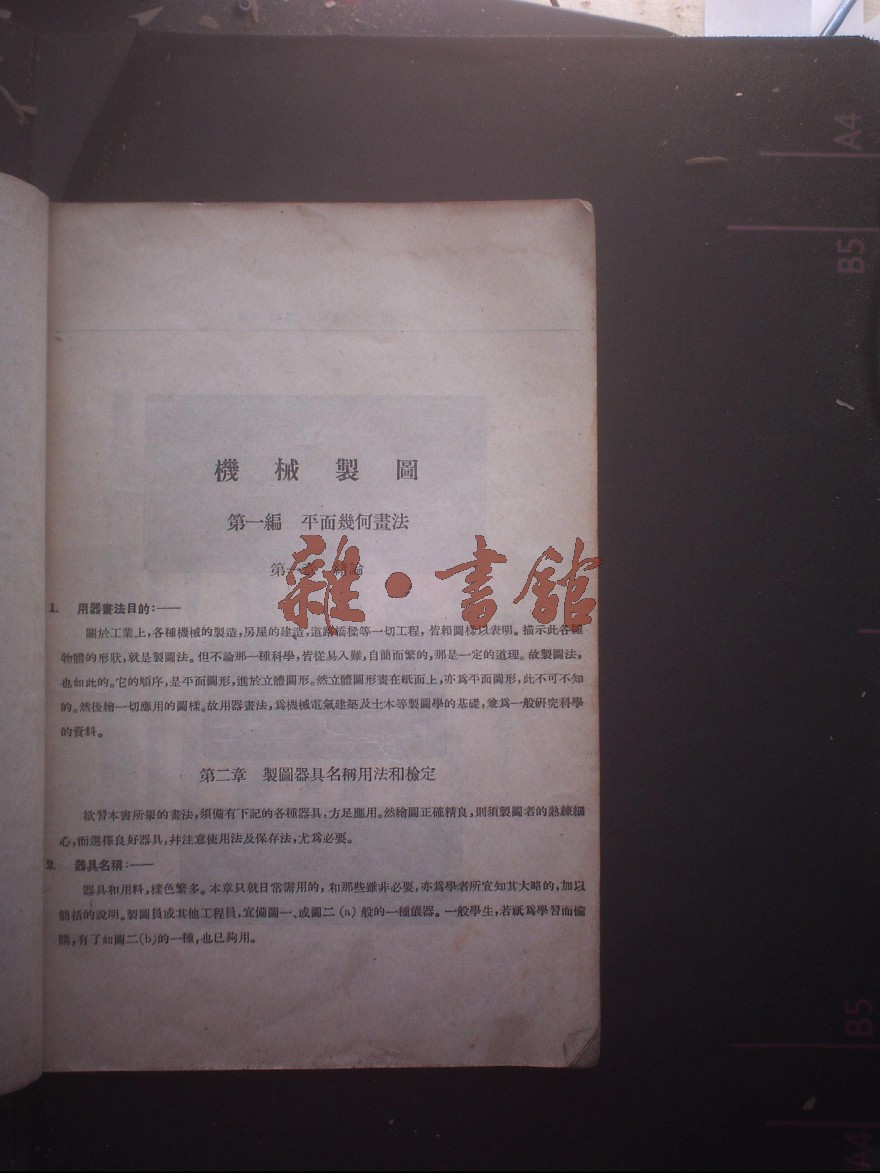 機械製圖
第一編　平面幾何畫法
第一章　緒論
雜·書館
1.　用器畫法目的：——
關於工業上，各種機械的製造，房屋的建造，道路橋樑等一切工程，皆賴圖樣以表明。描示此各種
物體的形狀，就是製圖法。但不論那一種科學，皆從易入難，自簡而繁的，那是一定的道理。故製圖法，
也如此的。它的順序，是平面圖形，進於立體圖形。然立體圖形畫在紙面上，亦爲平面圖形，此不可不知
的。然後繪一切應用的圖樣。故用器畫法，爲機械電氣建築及土木等製圖學的基礎，兼爲一般研究科學
的資料。
第二章　製圖器具名稱用法和檢定
欲習本書所舉的畫法，須備有下記的各種器具，方足應用。然繪圖正確精良，則須製圖者的熟練細
心，而選擇良好器具，幷注意使用法及保存法，尤爲必要。
2.　器具名稱：——
器具和用料，樣色繁多。本章只就日常需用的，和那些雖非必要，亦爲學者所宜知其大略的，加以
簡括的說明。製圖員或其他工程員，宜備圖一、或圖二（a）般的一種儀器。一般學生，若祇爲學習而備
購，有了如圖二（b）的一種，也已夠用。
A4
B5
B5
A4